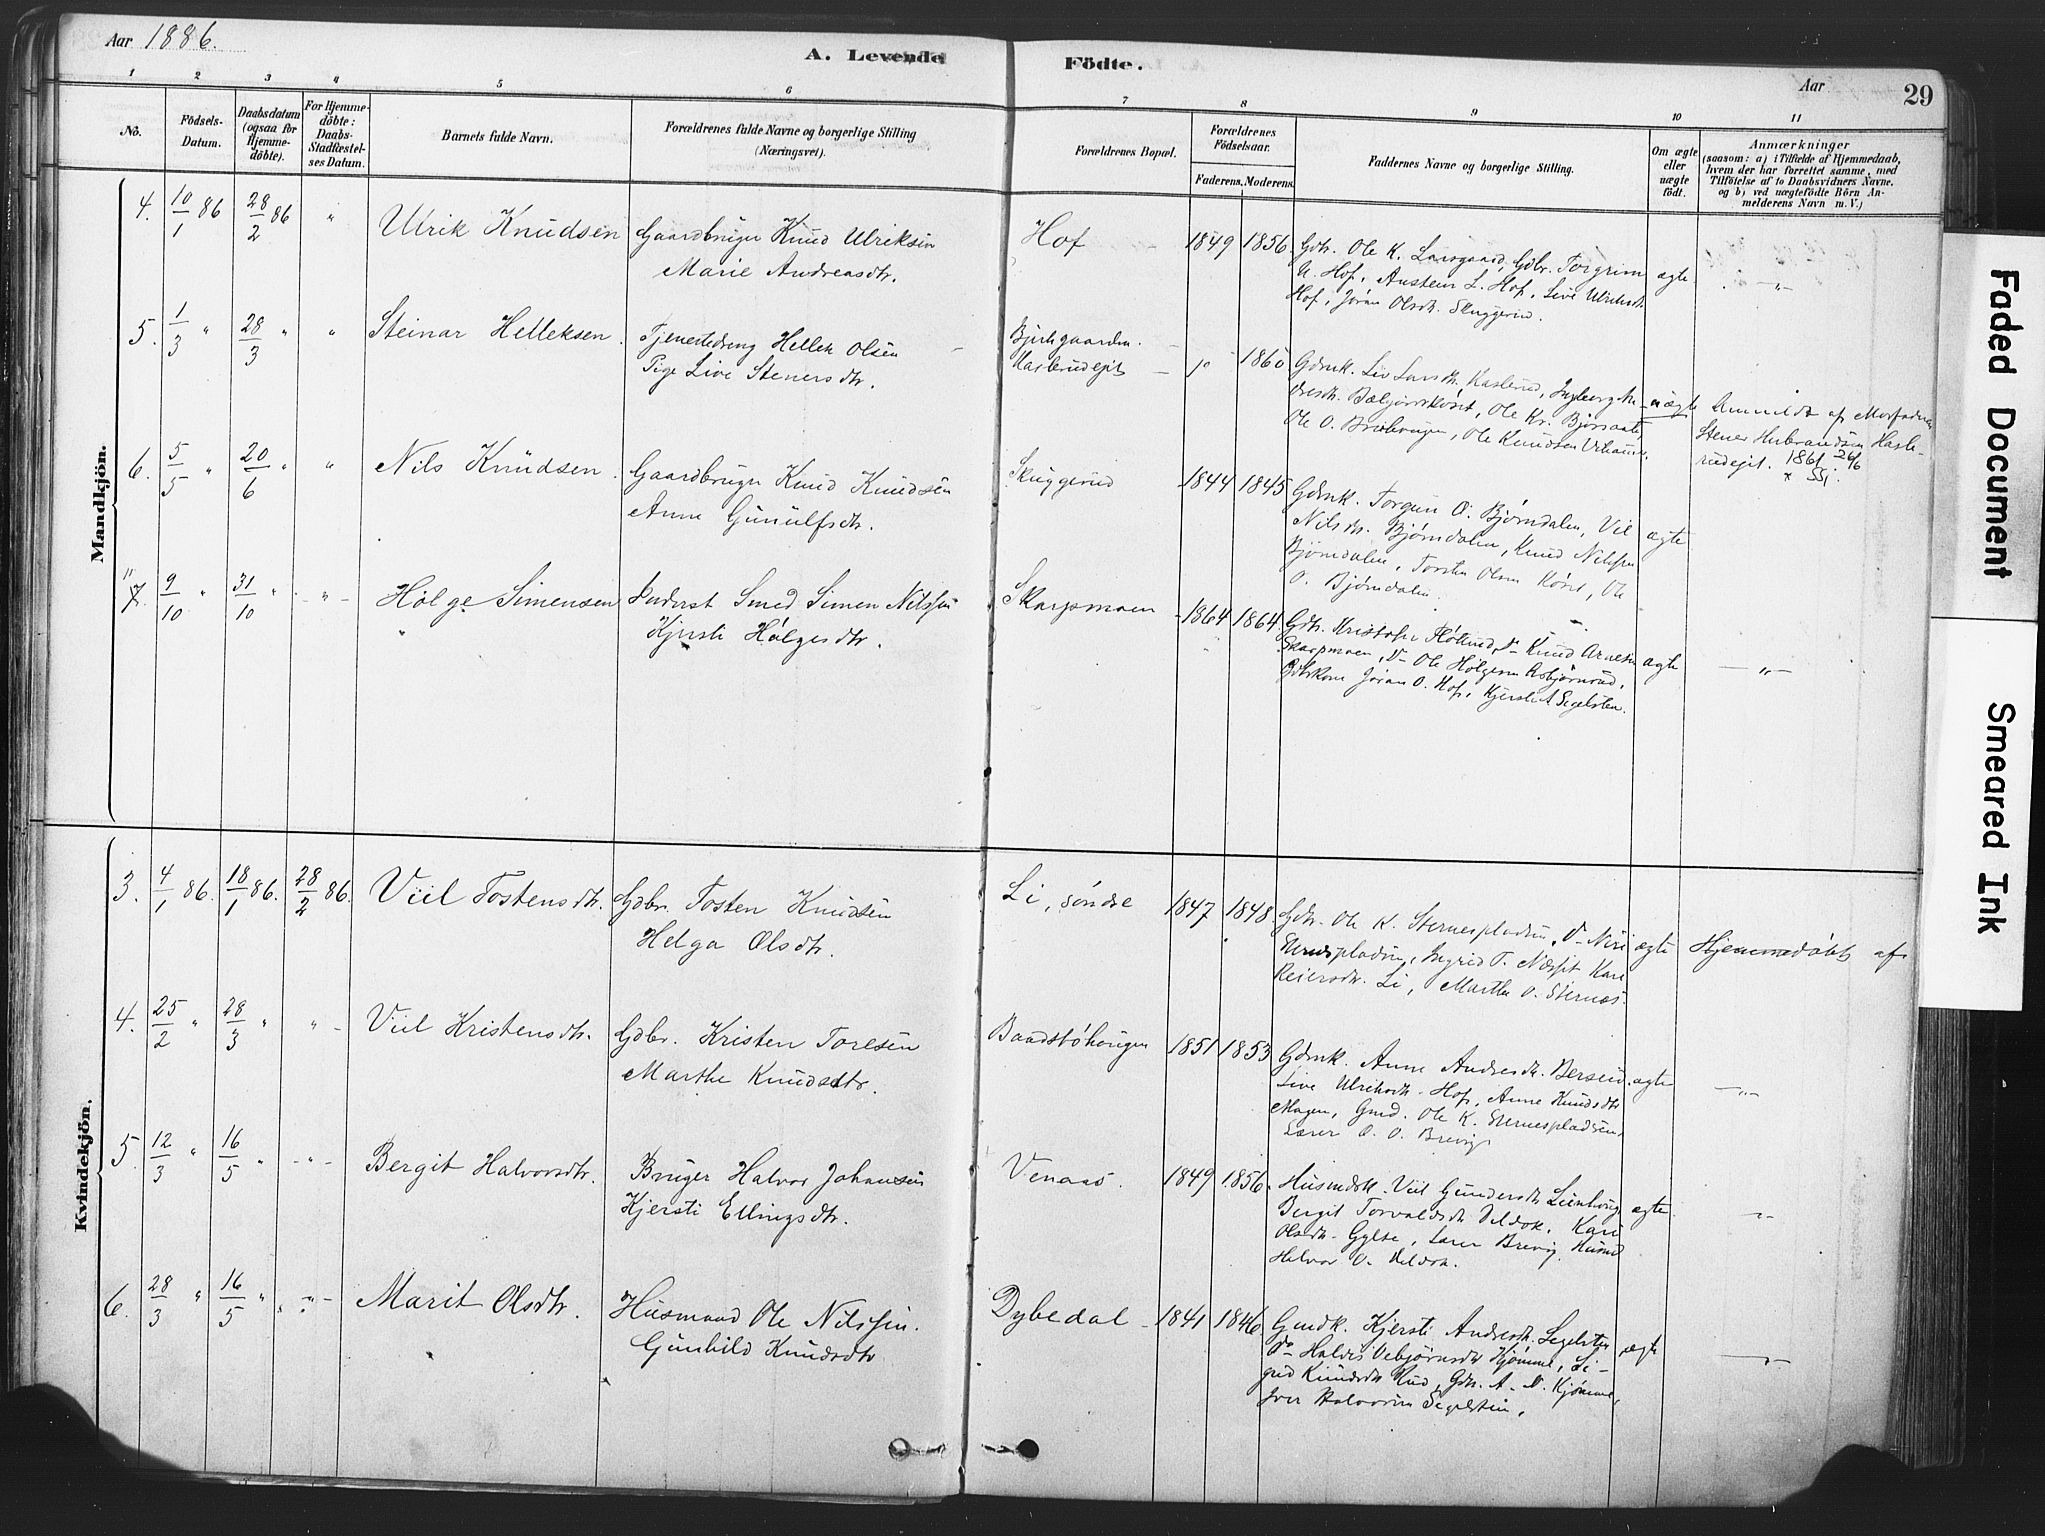 Aar 1886.
A. Levende Födte.
Aar
29
1 2 3 4 5 6 7 8 9 10 11
No.
Födsels-
Datum.
Daabsdatum
(ogsaa for
Hjemme-
döbte).
For Hjemme-
döbte:
Daabs-
Stadfæstel-
ses Datum.
Barnets fulde Navn.
Forældrenes fulde Navne og borgerlige Stilling
(Næringsvei).
Forældrenes Bopæl.
Forældrenes
Födselsaar.
Faderens. Moderens.
Faddernes Navne og borgerlige Stilling.
Om ægte
eller
uægte
födt.
Anmærkninger
(saasom: a) i Tilfælde af Hjemmedaab,
hvem der har forrettet samme, med
Tilföielse af to Daabsvidners Navne,
og b) ved uægtefödte Börn An-
melderens Navn m. V.)
Mandkjön.
4. 10/1 86 28/2 86 "
Ulrik Knudsen
Gaardbruger Knud Ulriksen
Marie Andreasdtr.
Hof
1849 1856
Gdbr. Ole K. Gdbr. Torgrim
U. Hof, Austein L. Hof, Live Ulriksdtr.
Hof, Jøran Olsdtr. Skuggerud.
ægte
"
5. 1/3 " 28/3 " "
Steinar Helleksen.
Tjenestedreng Hellek Olsen
Pige Live Stenersdtr.
Haslerudejet
1860
Gdmk. Liv Larsdtr. Haslerud, Ingeborg
Ole Kr.
Ole O. Ole Knudsen
uægte
Anmeldt af Morfaderen
Stener Haslerudejet. 1861 26/6
6. 5/5 " 20/6 " "
Nils Knudsen.
Gaardbruger Knud Knudsen
Anne Gunulfsdtr.
Skuggerud
1844 1845
Gdmk. Torgun O. Bjørndalen, Vil
Nilsdtr. Bjørndalen, Knud Nilssen
Bjørndalen, Torsten Olsen Ole
O. Bjørndalen.
ægte
7. 9/10 " 31/10 " "
Holge Simensen
Inderst Smed Simen Nilssen
Kjersti Holgesdtr.
Skarpmoen
1864 1864
Gdbr. Kristofer Knud Arnesen
Skarpmoen, Do Ole Holgesen Asbjørnrud,
Jøran O. Hof, Kjersti A Segelsten.
ægte
"
Kvindekjön.
3. 4/1 86. 18/1 86. 28/2 86.
Viil Tostensdtr.
Gdbr. Tosten Knudsen
Helga Olsdtr.
Li, søndre
1847 1848
Gdbr. Ole K. Sternespladsen, Do Niri
Sternespladsen, Ingrid T. Kari
Reiersdtr. Li, Marthe O. Sternes.
ægte
Hjemmedøbt af
4. 25/2 " 28/3 " "
Viil Kristensdtr.
Gdbr. Kristen Toresen
Marthe Knudsdtr.
Baadstøhaugen
1851 1853
Gdmk. Anne Andresdtr.
Live Ulriksdtr. Hof, Anne Knudsdtr
Mogen, Gmd. Ole K. Sternespladsen,
Lærer O. O. Brevig
ægte
"
5. 12/3 " 16/5 " "
Bergit Halvorsdtr.
Bruger Halvor Johansen
Kjersti Ellingsdtr.
Venaas.
1849 1856.
Husmdsk. Viil Gundersdtr.
Bergit Torvaldsdtr Veldok, Kari
Olsdtr. Gylse, Lærer Brevig,
Halvor O. Veldok.
ægte.
"
6. 28/3 " 16/5 " "
Marit Olsdtr.
Husmand Ole Nilssen.
Gunhild Knudsdtr
Dybedal
1841 1846
Gmdk. Kjersti Andresdtr. Segelsten
Do Haldis Vebjørnsdtr Kjømme, Si-
grid Knudsdtr Rud, Gdbr. A. N. Kjømme,
Iver Halvorsen Segelsten.
ægte
"
Faded Document
Smeared Ink